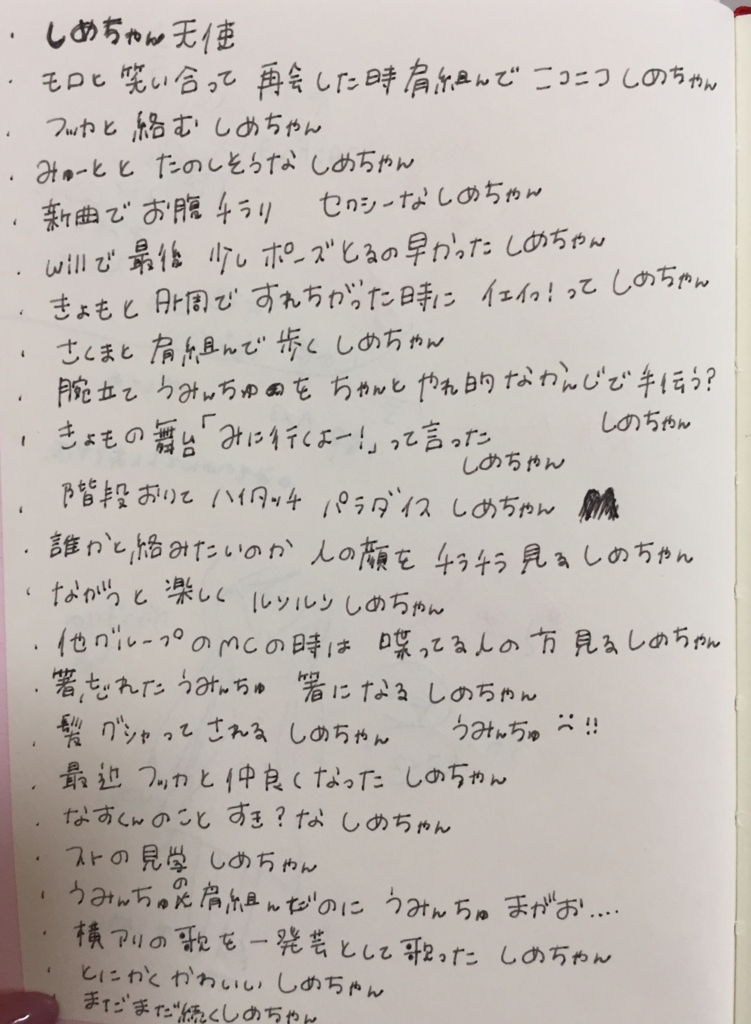 ・しめちゃん天使
・モロと笑い合って 再会した時肩組んで ニコニコ しめちゃん
・フッカと絡む しめちゃん
・みゅーとと たのしそうな しめちゃん
・新曲で お腹チラリ セクシーな しめちゃん
・willで最後 少しポーズとるの早かった しめちゃん
・きょもと 外周で すれちがった時に イエイっ!って しめちゃん
・さくまと 肩組んで 歩く しめちゃん
・腕立て うみんちゅ を ちゃんと やれ的 なかんじで手伝う?
しめちゃん
・きょもの舞台「みに行くよー!」って言った
しめちゃん
・階段おりて ハイタッチ パラダイス しめちゃん
・誰かと絡みたいのか 人の顔を チラチラ 見る しめちゃん
・ながつと 楽しく ルンルン しめちゃん
・他グループのMCの時は 喋ってる人の方 見る しめちゃん
・箸忘れた うみんちゅ 箸になる しめちゃん
・髪 グシャって される しめちゃん うみんちゅ ):!!
・最近 フッカと 仲良くなった しめちゃん
・なすくんのこと すき?な しめちゃん
・ストの見学 しめちゃん
・うみんちゅの 肩組んだのに うみんちゅ まがお....
・横アリの歌を 一発芸として歌った しめちゃん
・とにかく かわいい しめちゃん
・まだまだ続くしめちゃん